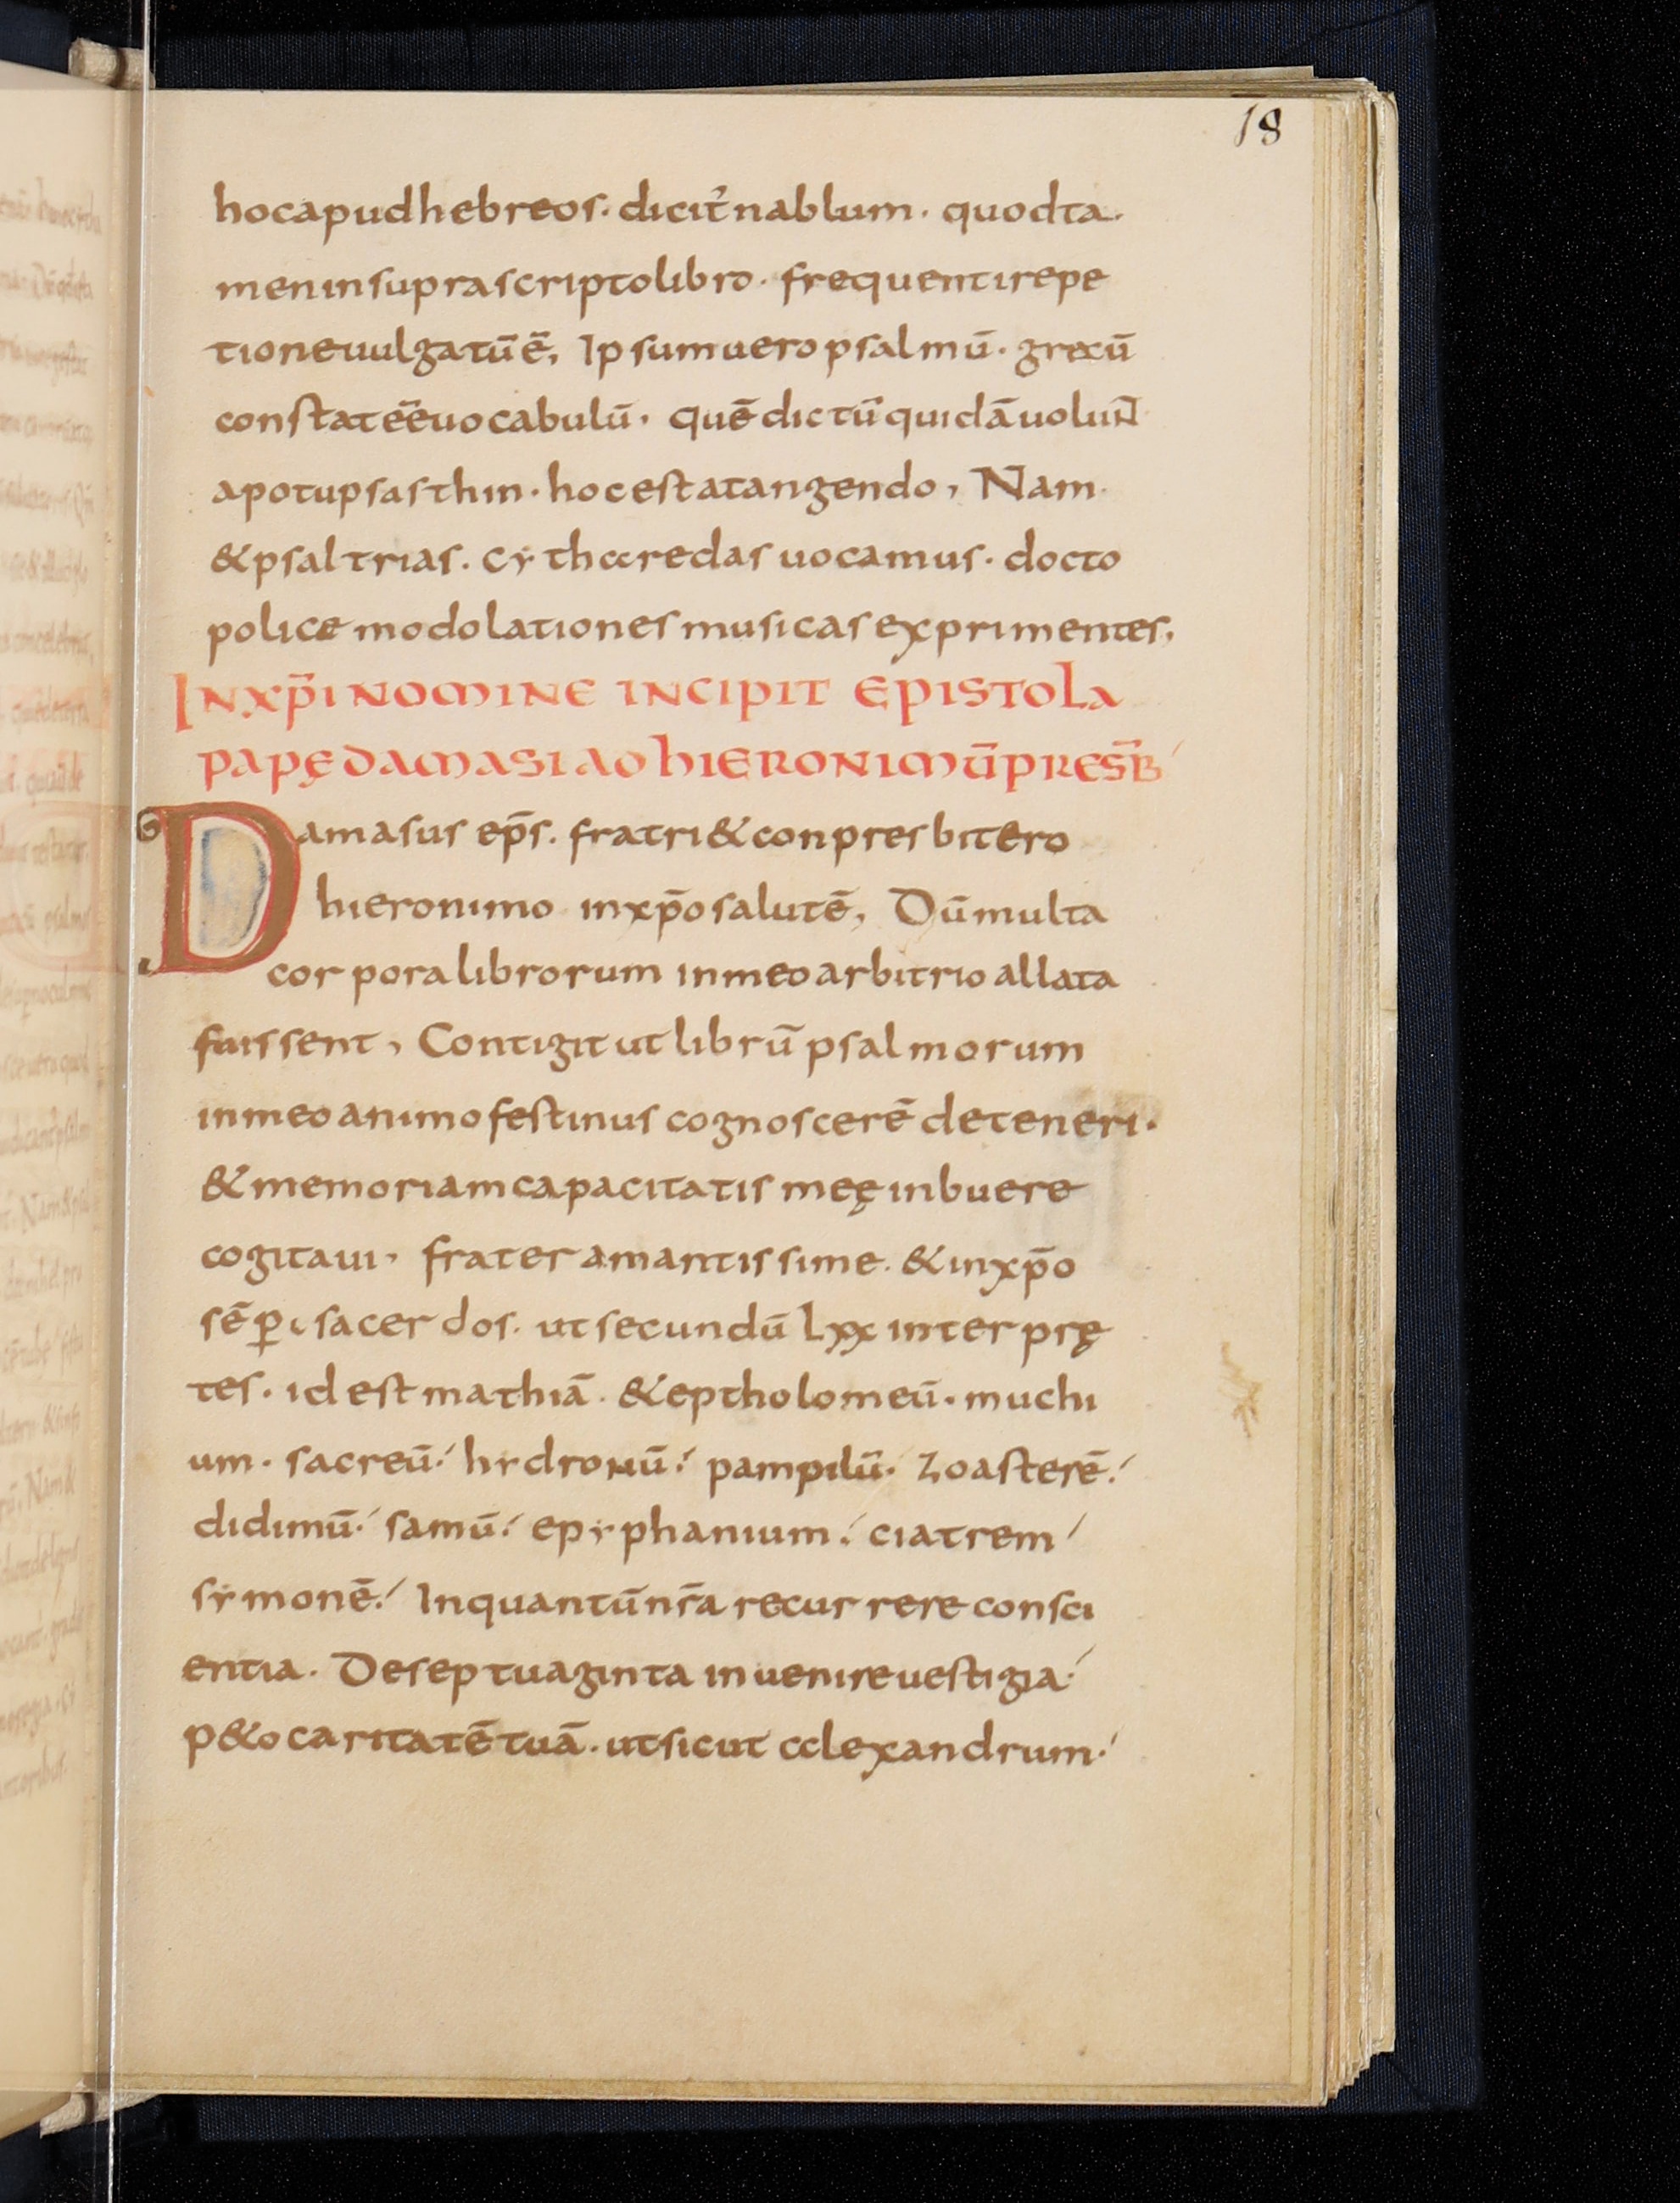 18
hocapudhebreos· dicit̄ nablum· quodta·
meninsuprascriptolibro· frequentirepe
tioneuulgatūē, Ipsumueropsalmū· grecū
constateēēuocabulū· quēdictūquidāuoluN̄
apotupsasthin· hocestatangendo, Nam·
&psaltrias· cythaŕedas uocamus· docto
police modolationes musicas exprimentes,
INXP̄I NOMINE INCIPIT EPISTOLA
PAPĘ DAMASI AD HIERONIMŪ PRESB̄
Damasus ep̄s. fratri&conpresbitero
hieronimo inxp̄osalutē, Dūmulta
corpora librorum inmeoarbitrio allata
fuissent, Contigit ut librū psalmorum
inmeoanimofestinus cognoscerē deteneri·
&memoriamcapacitatis meę inbuere
cogitaui· frater amantissime· &inxp̄o
sēꝑ sacerdos· ut secundū Lxx interprę
tes· id est mathiā· &eptholomeū· muchi
um· sacreū·/ hydronū·/ pampilū· Zoasterē·/
didimū·/ samū·/ epyphanium·/ ciatrem/
symonē·/ Inquantūnr̄a recurrere consci
entia· Deseptuaginta inuenireuestigia·/
p&ocaritatētuā· utsicut alexandrum·/